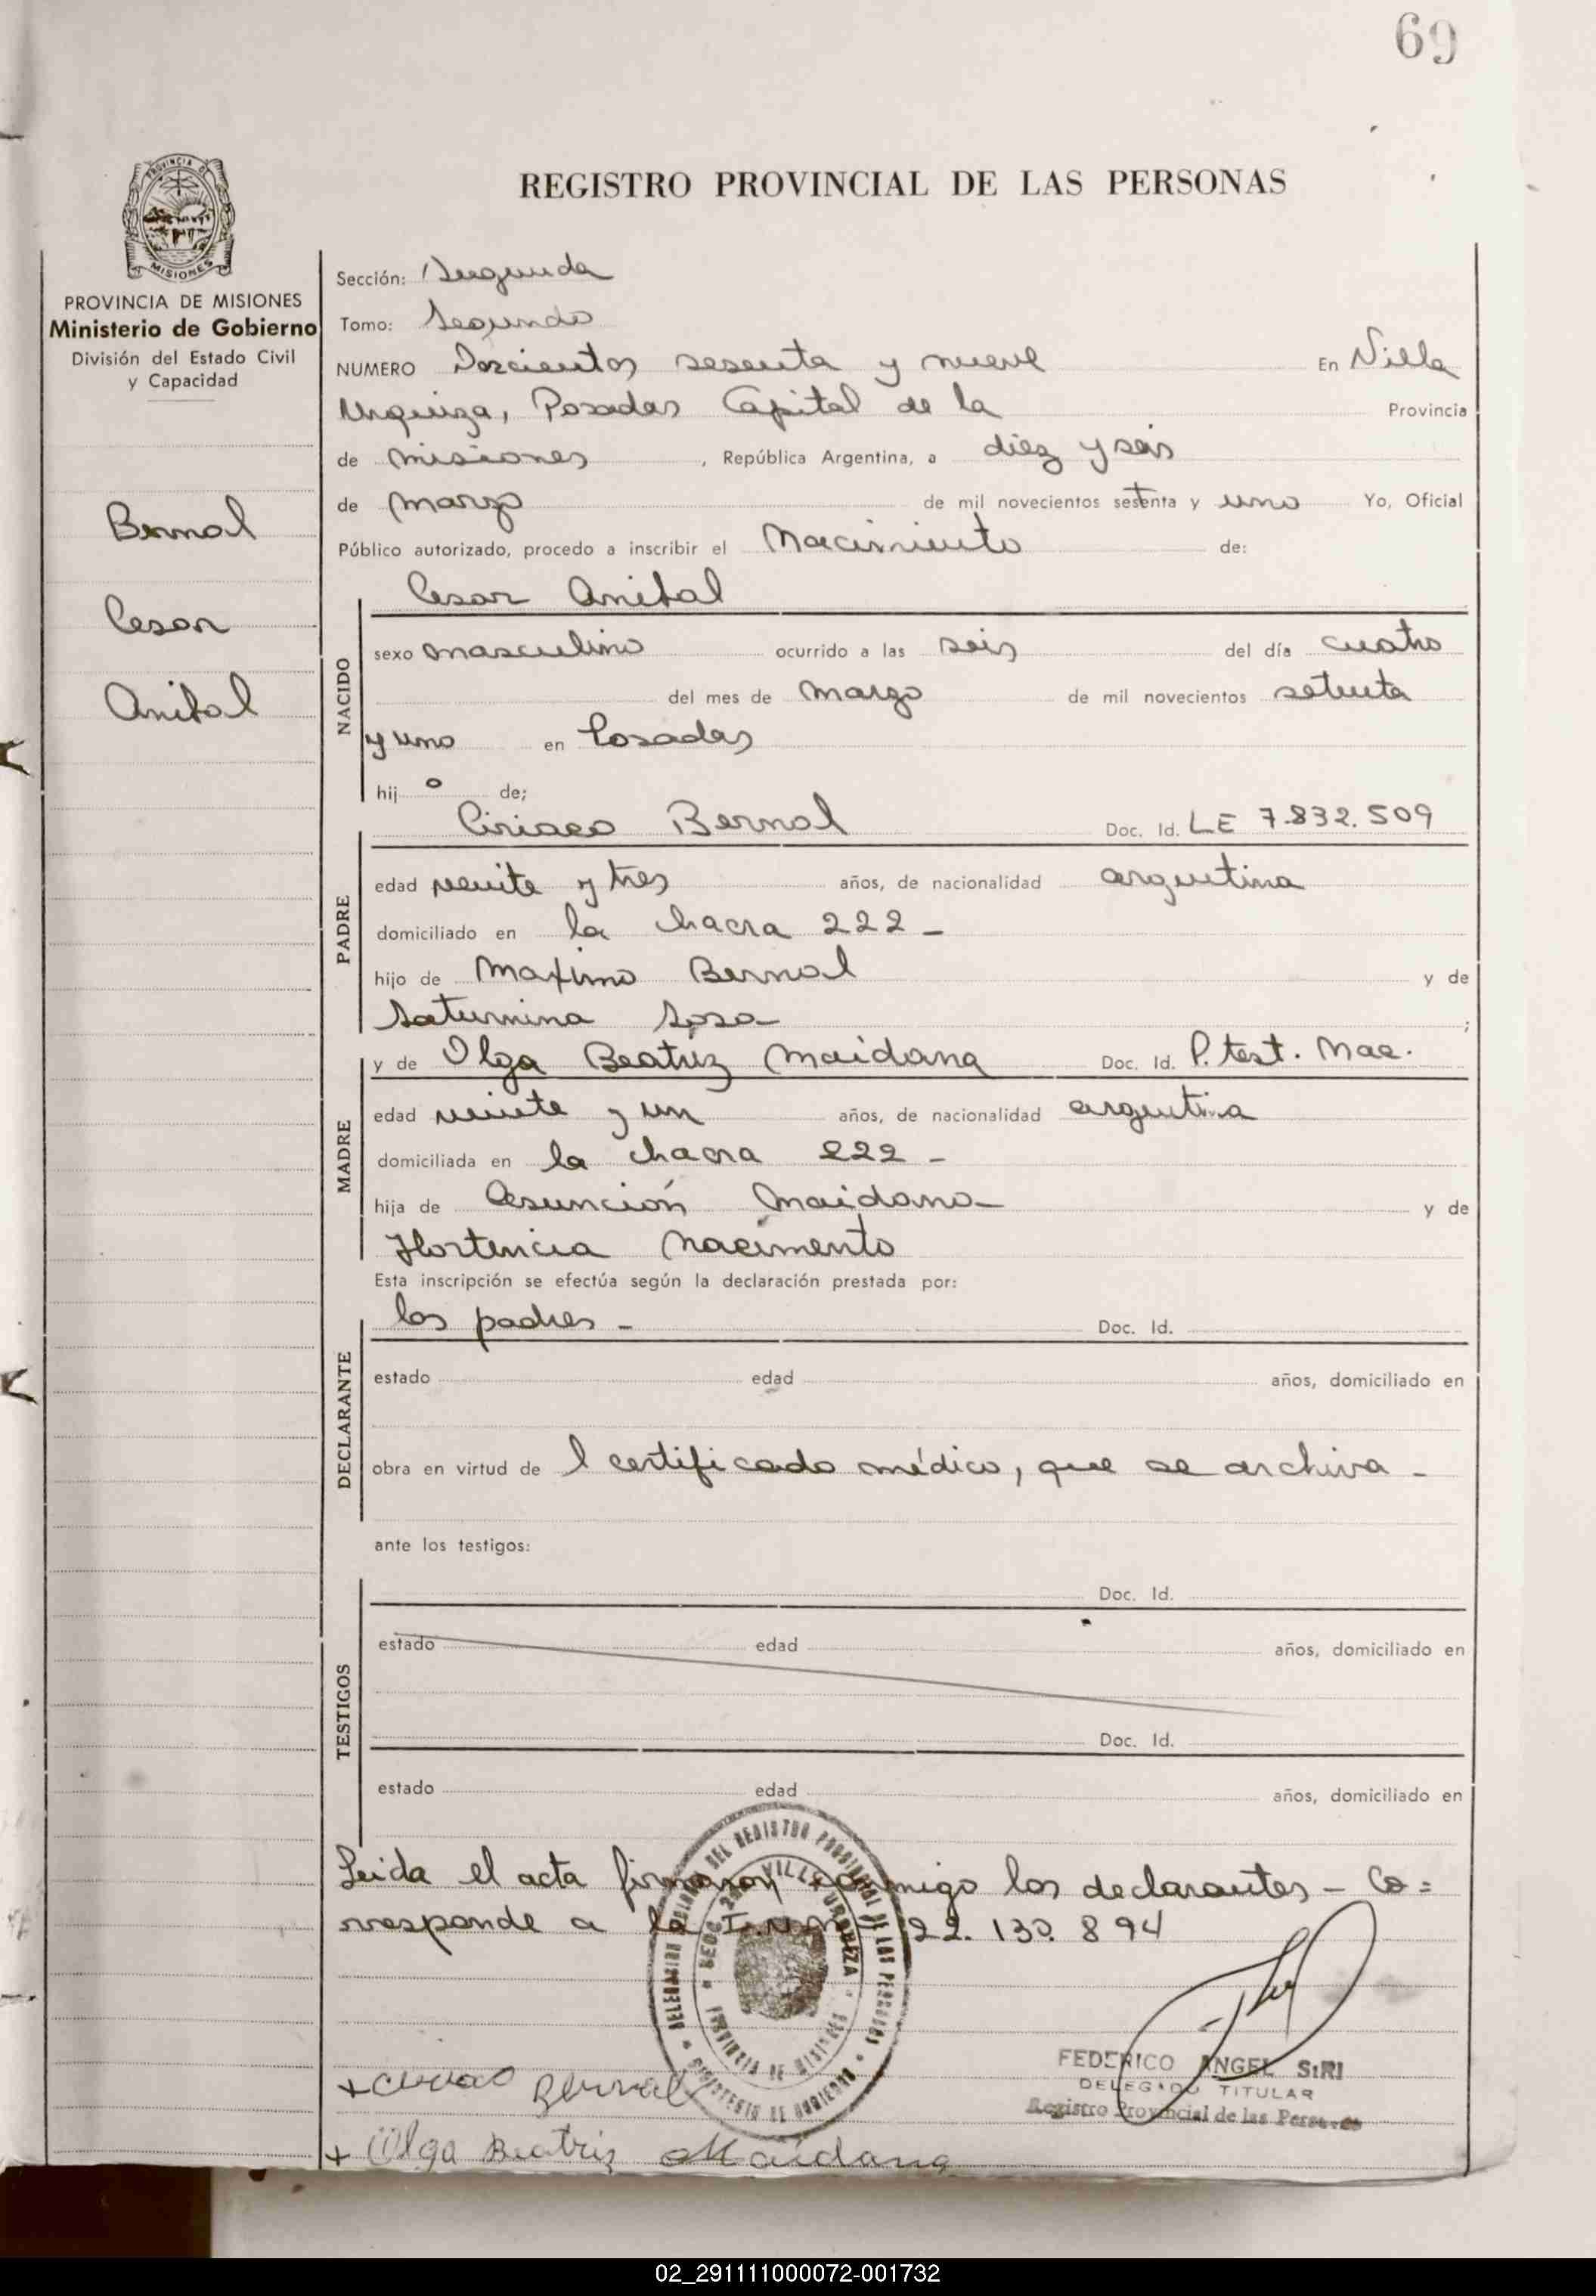 69
PROVINCIA DE
MISIONES
PROVINCIA DE MISIONES
Ministerio de Gobierno
División del Estado Civil
y Capacidad
Bernal
Cesar
Anibal
REGISTRO PROVINCIAL DE LAS PERSONAS
Sección: Segunda
Tomo: Segundo
NUMERO Doscientos sesenta y nueve En Villa
Urquiza, Posadas Capital de la Provincia
de misiones, República Argentina, a diez y seis
de marzo de mil novecientos setenta y uno Yo, Oficial
Público autorizado, procedo a inscribir el Nacimiento de:
Cesar Anibal
NACIDO
sexo masculino ocurrido a las seis del día cuatro
del mes de marzo de mil novecientos setenta
y uno en Posadas
hij o de;
Ciriaco Bernal Doc. Id. LE 7.832.509
PADRE
edad veinte y tres años, de nacionalidad argentina
domiciliado en la chacra 222 -
hijo de Maximo Bernal y de
Saturnina Sosa ;
y de Olga Beatriz Maidana Doc. Id. P. test. Nac.
MADRE
edad veinte y un años, de nacionalidad argentina
domiciliada en la chacra 222 -
hija de Asunción Maidana y de
Hortencia Nacimento
Esta inscripción se efectúa según la declaración prestada por:
los padres - Doc. Id.
DECLARANTE
estado edad años, domiciliado en
obra en virtud de l certificado médico, que se archiva -
ante los testigos:
Doc. Id.
TESTIGOS
estado edad años, domiciliado en
Doc. Id.
estado edad años, domiciliado en
Leida el acta firmaron conmigo los declarantes - Co=
rresponde a la 22.130.894
DEL REGISTRO PROVINCIAL DE LAS PERSONAS
VILLA URQUIZA
PROVINCIA DE MISIONES
MINISTERIO DE GOBIERNO
FEDERICO ANGEL SIRI
DELEGADO TITULAR
Registro Provincial de las Personas
+ Ciriaco Bernal
+ Olga Beatriz Maidana
02_291111000072-001732